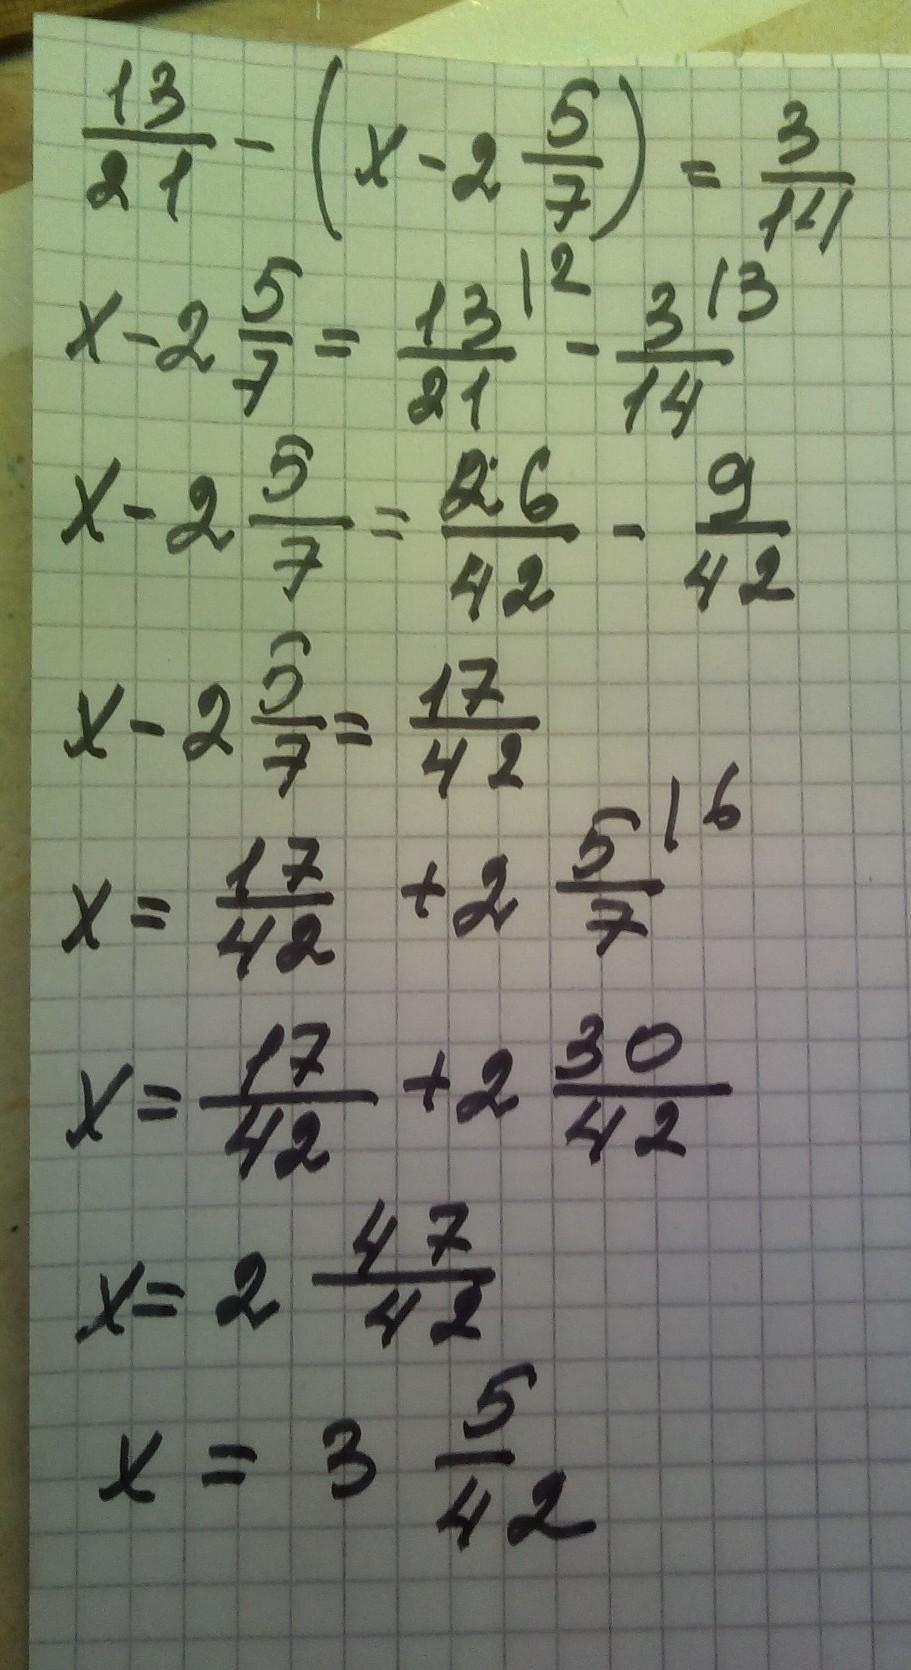 13/21 - (x - 2 5/7) = 3/14
x - 2 5/7 = 13/21 |2 - 3/14 |3
x - 2 5/7 = 26/42 - 9/42
x - 2 5/7 = 17/42
x = 17/42 + 2 5/7 |6
x = 17/42 + 2 30/42
x = 2 47/42
x = 3 5/42